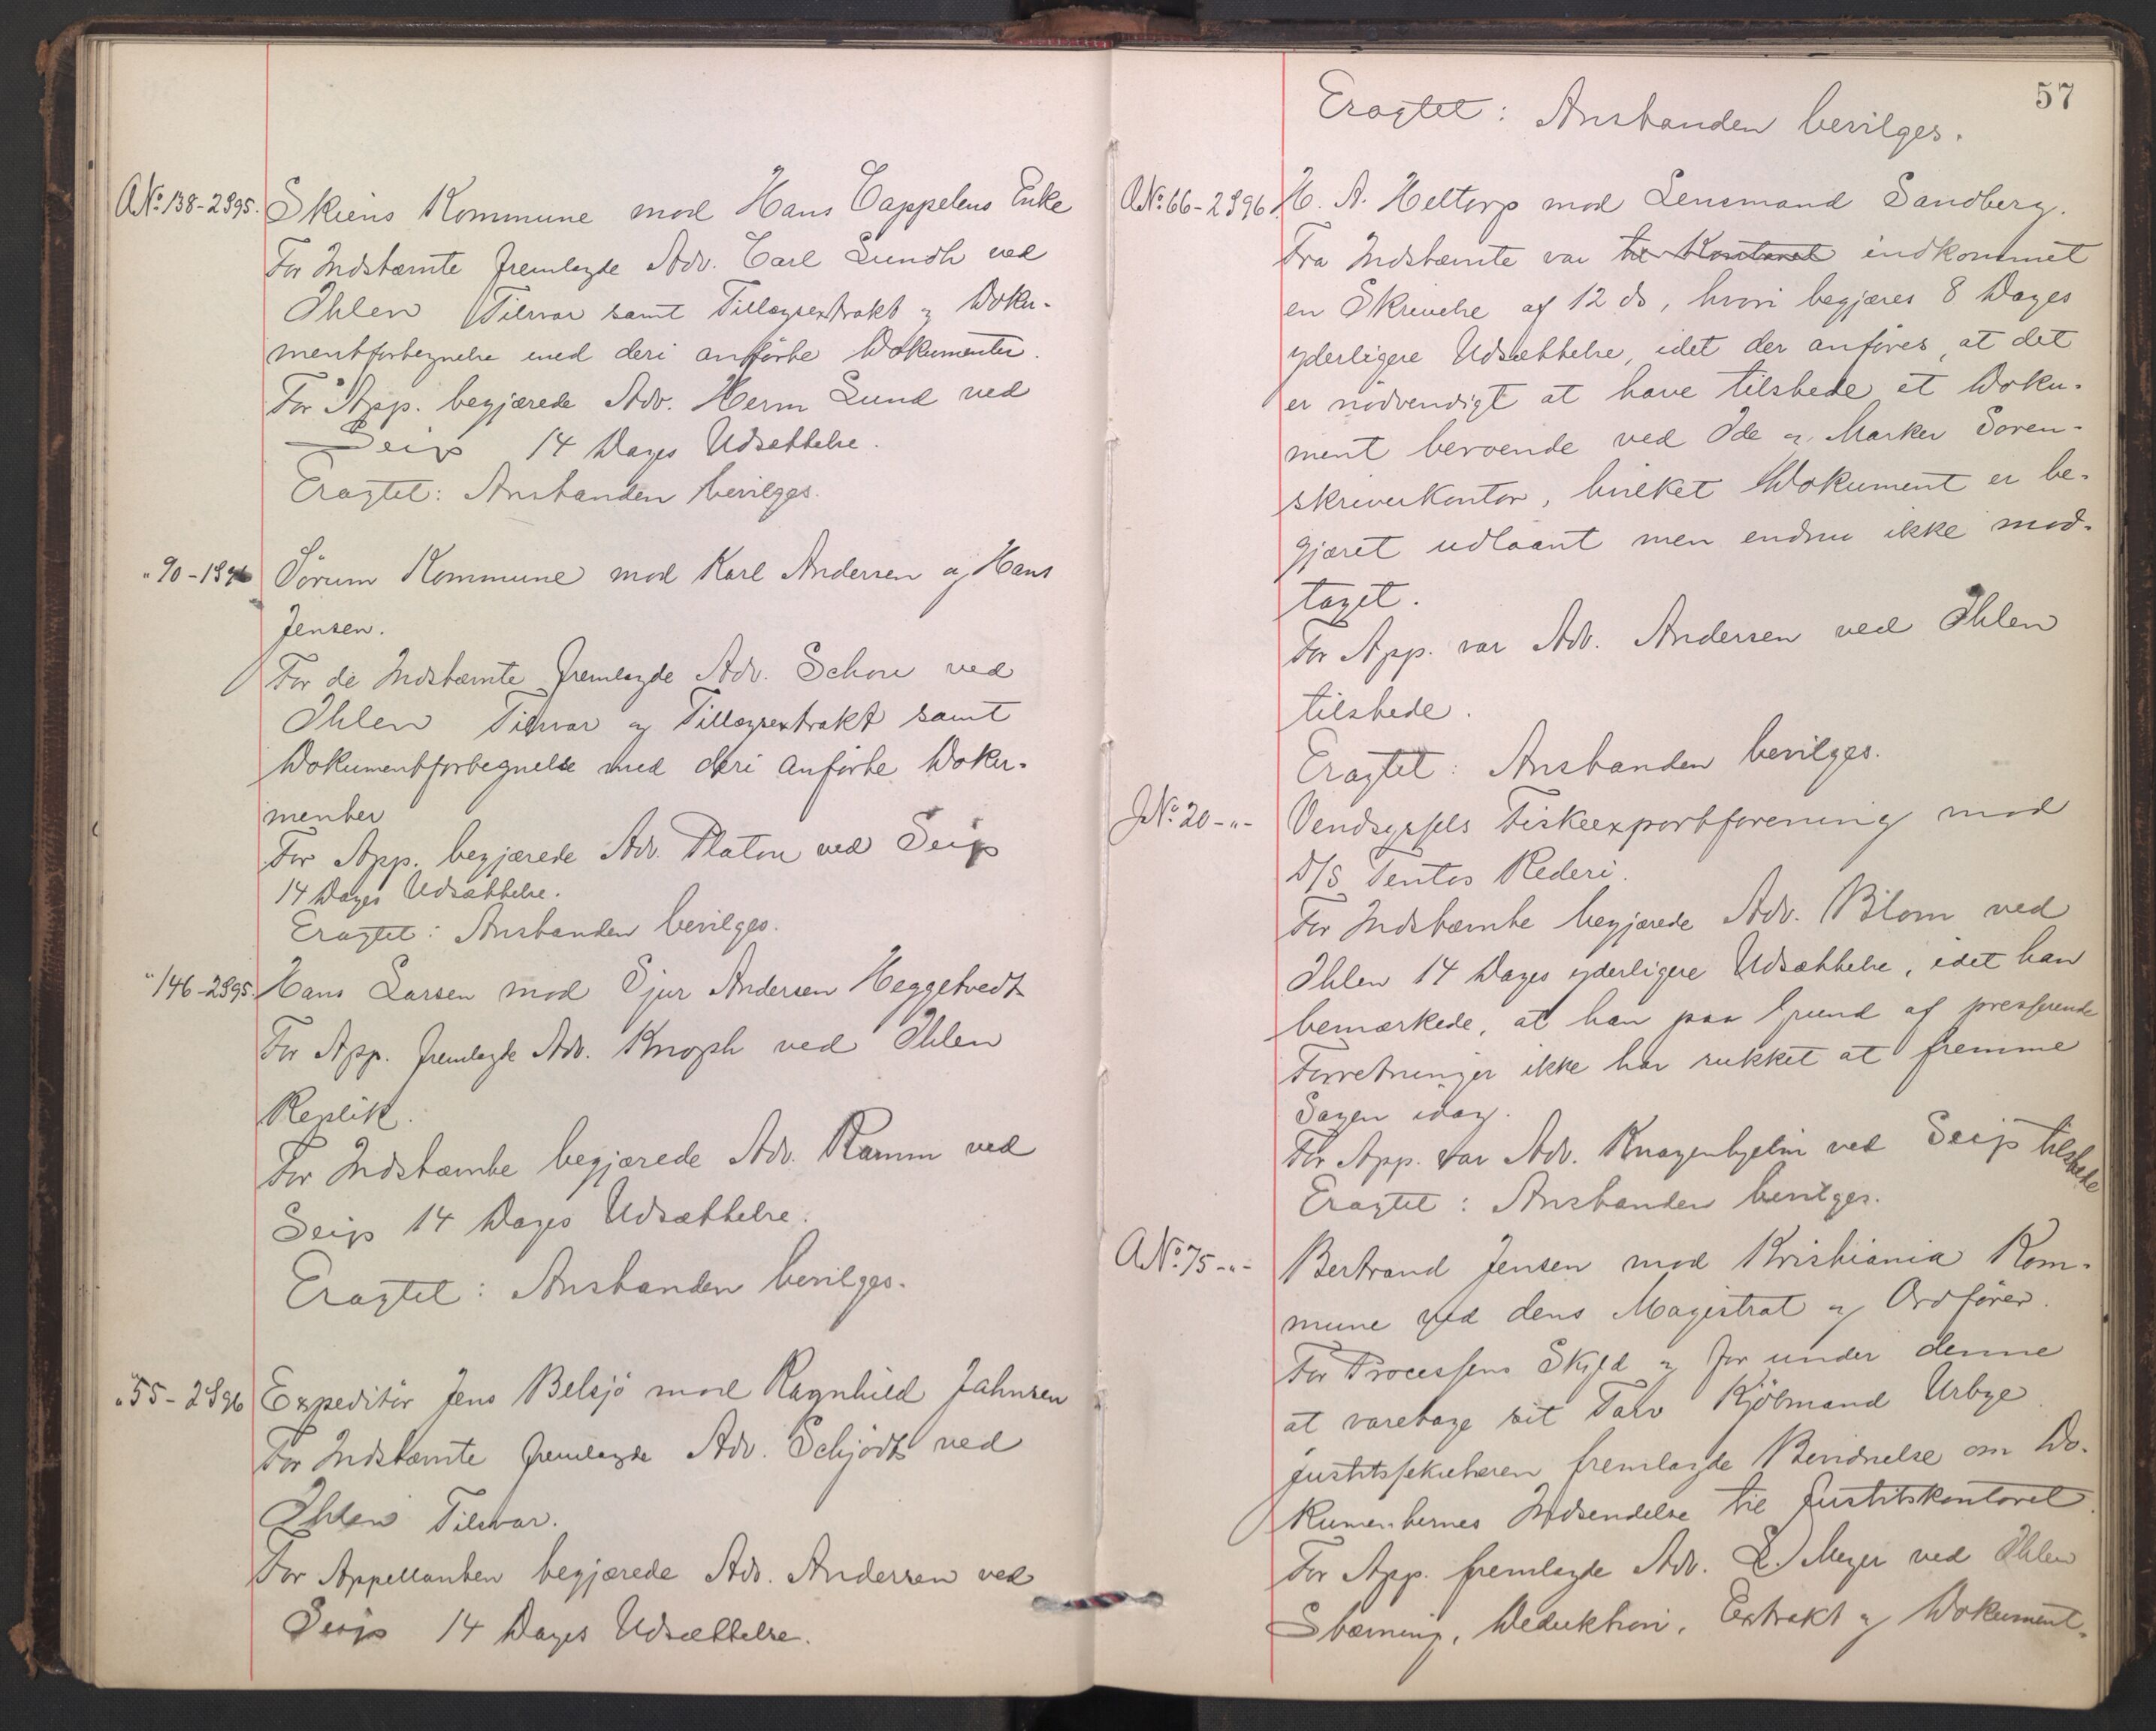 A№ 138-2895. Skiens Kommune mod Hans Cappelens Enke
For Indstæmte fremlagde Adv. Carl Lundh ved
Ihlen Tilsvar samt Tillægsextrakt og Doku-
mentfortegnelse med deri anførte Dokumenter.
For App. begjærede Adv. Herm Lund ved
Seip 14 Dages Udsættelse.
Eragtet: Anstanden bevilges.
" 90-1896 Sörum Kommune mod Karl Andersen og Hans
Jensen.
For de Indstæmte fremlagde Adv. Schou ved
Ihlen Tilsvar og Tillægsextrakt samt
Dokumentfortegnelse med deri anførte Doku-
menter
For App. begjærede Adv. Platou ved Seip
14 Dages Udsættelse.
Eragtet: Anstanden bevilges.
" 146-2895. Hans Larsen mod Sjur Andersen Heggetvedt
For App. fremlagde Adv. Knoph ved Ihlen
Replik.
For Indstæmte begjærede Adv. Ramm ved
Seip 14 Dages Udsættelse.
Eragtet: Anstanden bevilges.
" 55-2896 Expeditör Jens Belsjö mod Ragnhild Jahnsen
For Indstæmte fremlagde Adv. Schjödt ved
Ihlen Tilsvar.
For Appellanten begjærede Adv. Andersen ved
Seip 14 Dages Udsættelse.
57
Eragtet: Anstanden bevilges.
A№ 66-2896 H. A. Heltorp mod Lensmand Sandberg.
Fra Indstæmte var til Kontoret indkommet
en Skrivelse af 12 ds, hvori begjæres 8 Dages
yderligere Udsættelse, idet der anføres, at det
er nödvendigt at have tilstede et Doku-
ment beroende ved Ide og Marker Soren-
skriverkontor, hvilket Dokument er be-
gjæret udlaant men endnu ikke mod-
taget.
For App. var Adv. Andersen ved Ihlen
tilstede.
Eragtet: Anstanden bevilges.
J№ 20-"- Vendsyssels Fiskeexportforening mod
D/S Tentos Rederi.
For Indstæmte begjærede Adv. Blom ved
Ihlen 14 Dages yderligere Udsættelse, idet han
bemærkede, at han paa Grund af presserende
Forretninger ikke har rukket at fremme
Sagen idag.
For App. var Adv. Knagenhjelm ved Seip tilstede
Eragtet: Anstanden bevilges.
A№ 75-"- Bertrand Jensen mod Kristiania Kom-
mune ved dens Magistrat og Ordfører.
For Processens Skyld og for under denne
at varetage sit Tarv Kjöbmand Urbye.
Justitssekretæren fremlagde Bevidnelse om Do-
kumenternes Indsendelse til Justitskontoret.
For App. fremlagde Adv. L. Meyer ved Ihlen
Stævning, Deduktion, Extrakt og Dokument-